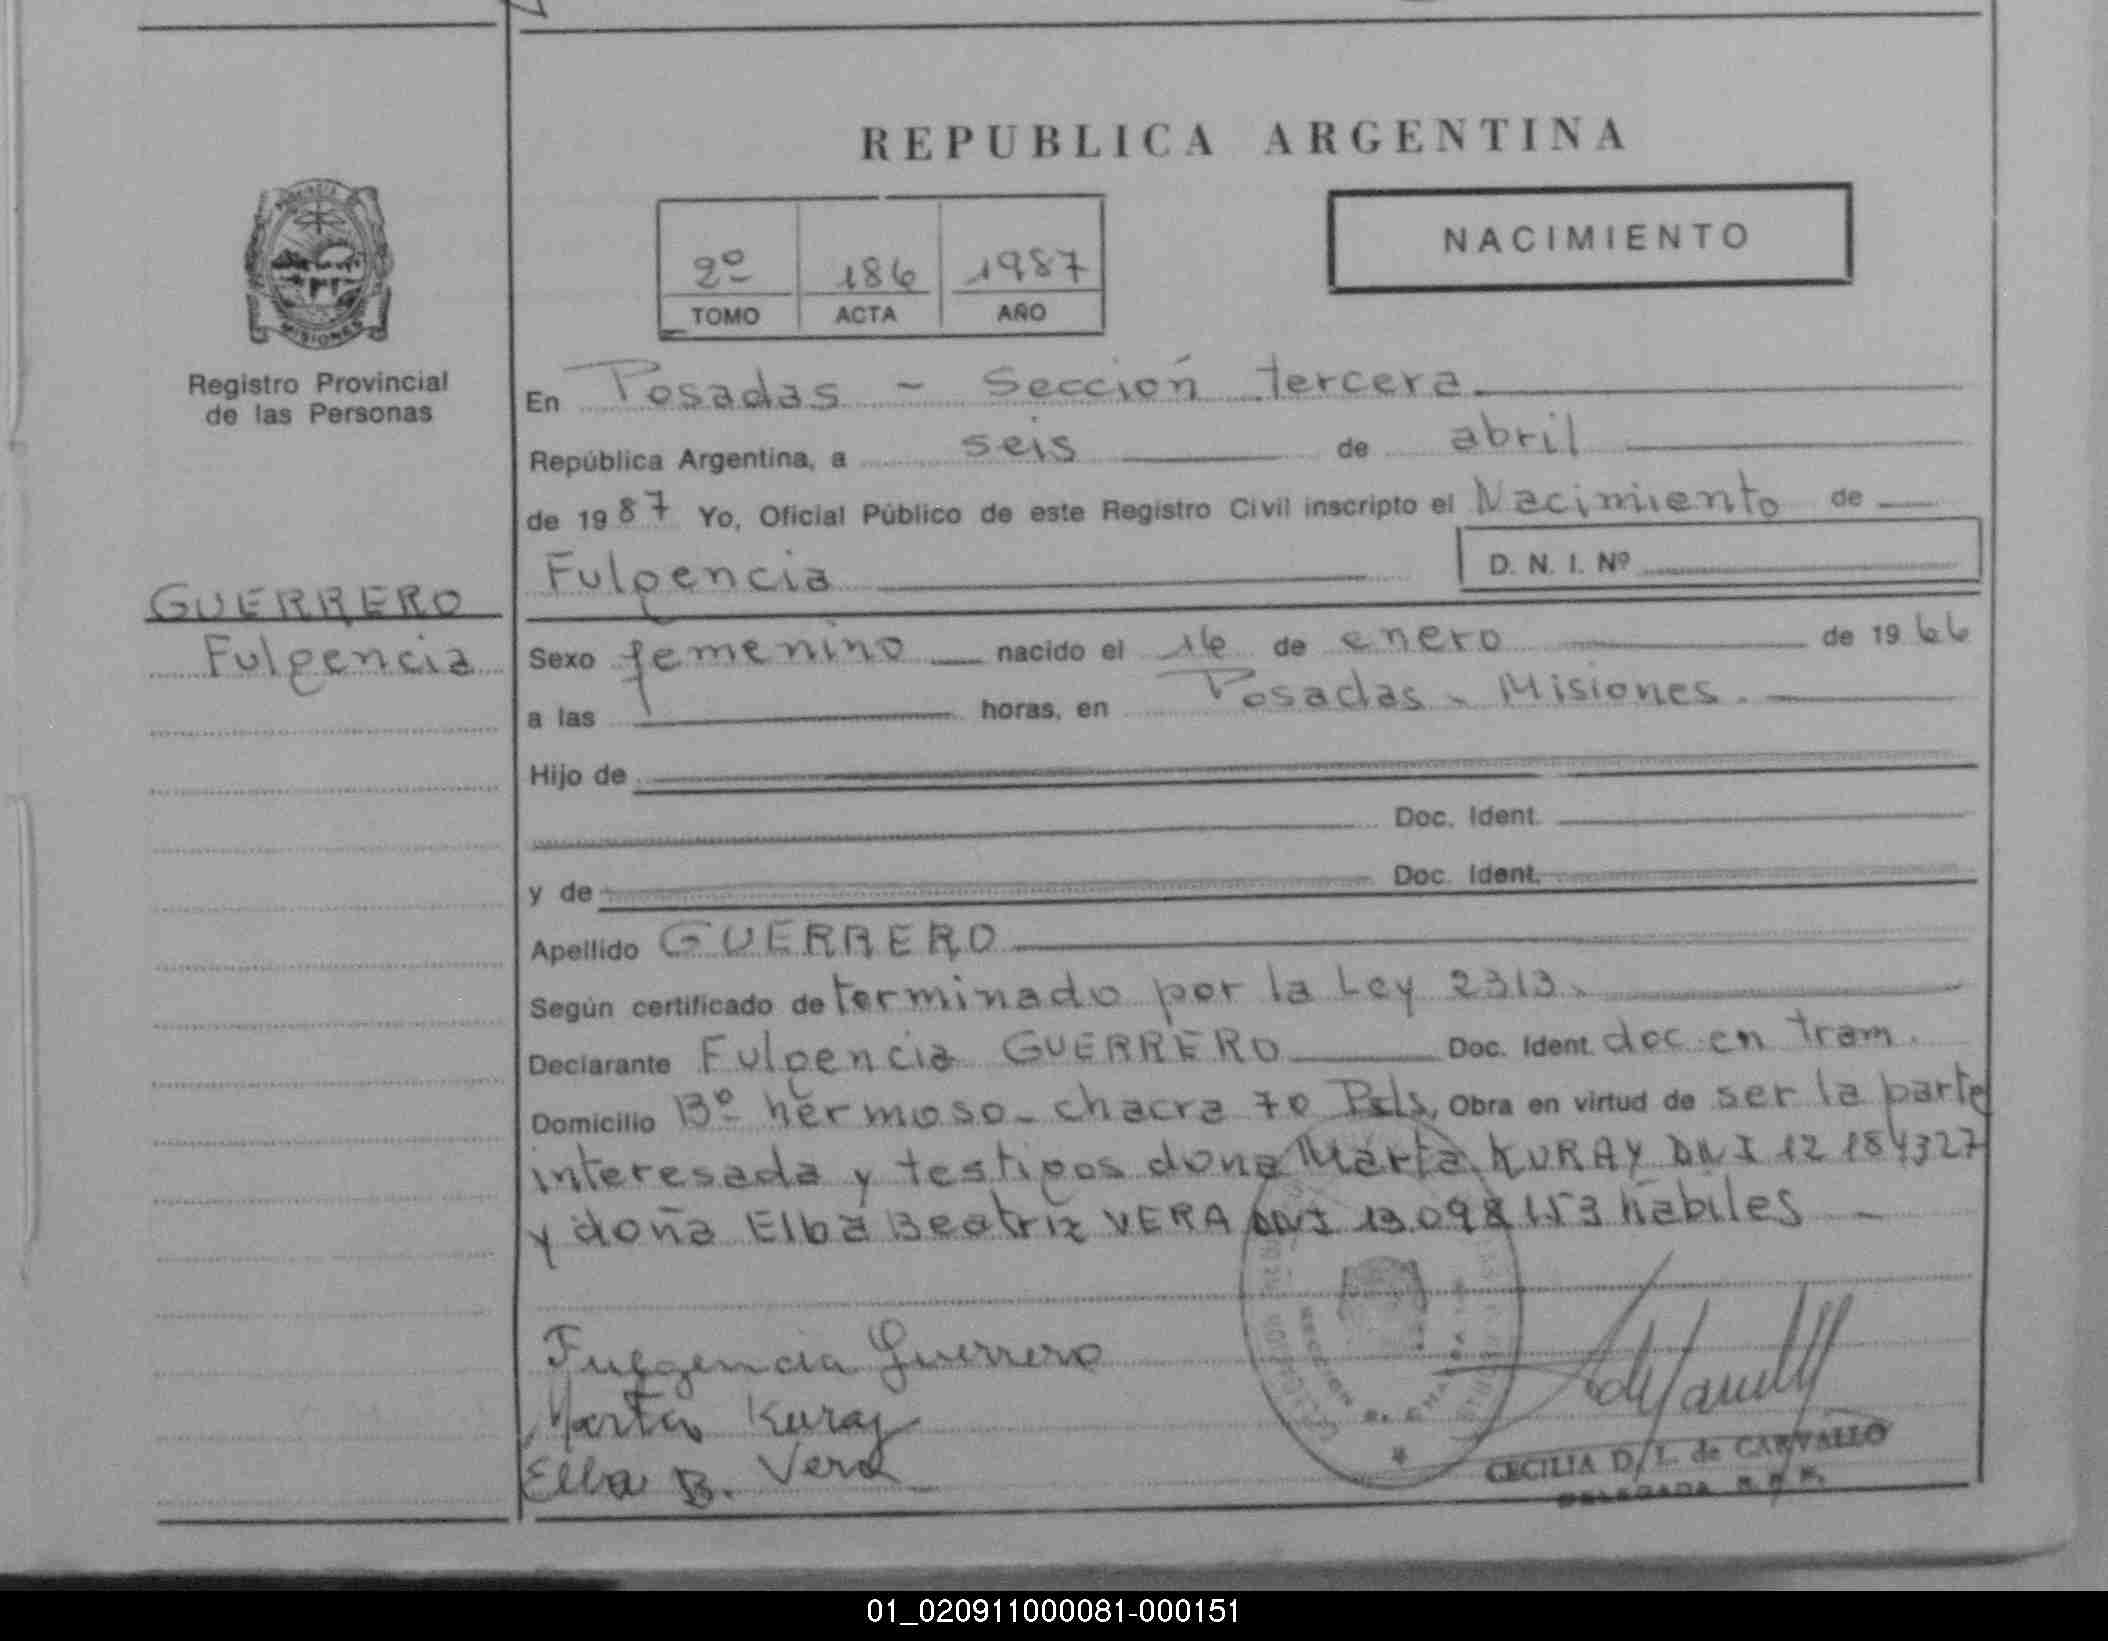 REPUBLICA ARGENTINA
NACIMIENTO
2º 186 1987
TOMO ACTA AÑO
MISIONES
Registro Provincial
de las Personas
GUERRERO
Fulgencia
En Posadas - Sección tercera
República Argentina, a seis de abril
de 1987 Yo, Oficial Público de este Registro Civil inscripto el Nacimiento de
Fulgencia D. N. I. Nº
Sexo femenino nacido el 16 de enero de 1966
a las horas, en Posadas - Misiones.
Hijo de
Doc. Ident.
y de Doc. Ident.
Apellido GUERRERO
Según certificado determinado por la Ley 2313.
Declarante Fulgencia GUERRERO Doc. Ident. doc. en tram.
Domicilio Bº hermoso - chacra 70 Pds, Obra en virtud de ser la parte
interesada y testigos doña Marta KURAY DNI 12 184327
y doña Elba Beatriz VERA DNI 13.098153 hábiles -
Fulgencia Guerrero
Marta Kuray
Elba B. Vera
CECILIA D. L. de CARVALLO
DELEGADA R. P. P.
01_020911000081-000151